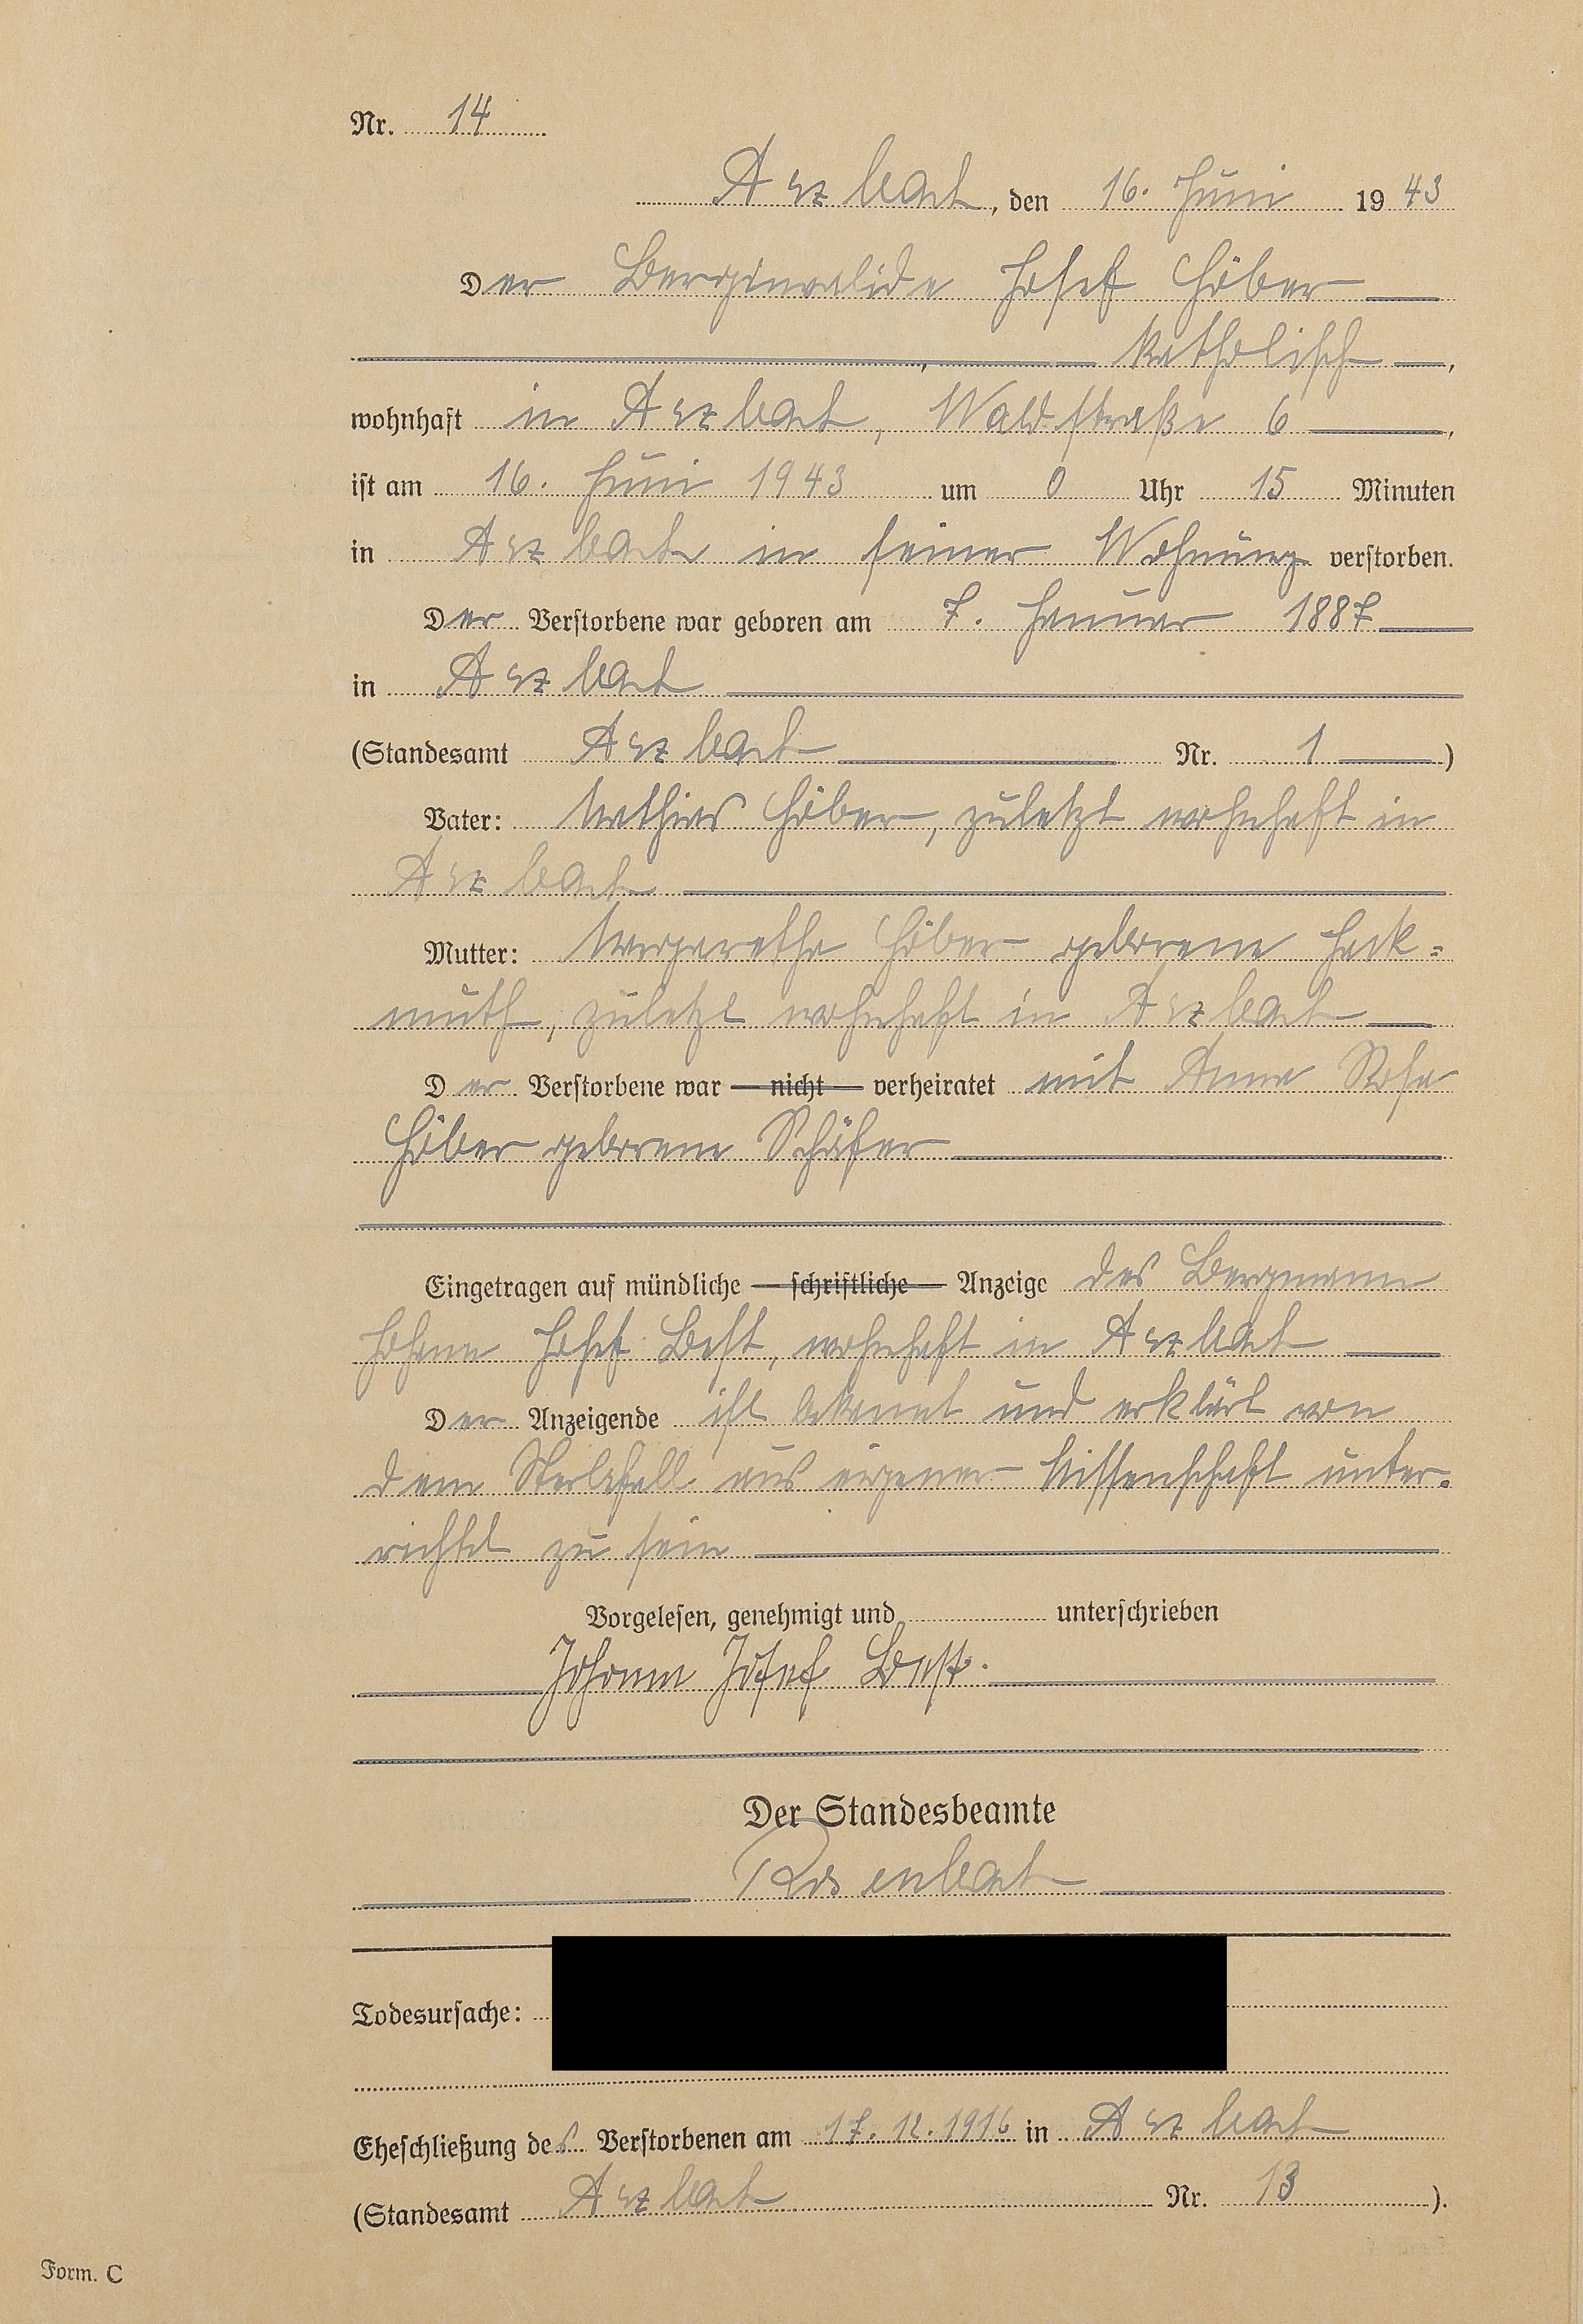 Nr. 14
Arzbach, den 16. Juni 1943
Der Berginvalide Josef Höber
katholisch,
wohnhaft in Arzbach, Waldstraße 6,
ist am 16. Juni 1943 um 0 Uhr 15 Minuten
in Arzbach in seiner Wohnung verstorben.
Der Verstorbene war geboren am 7. Januar 1887
in Arzbach
(Standesamt Arzbach Nr. 1)
Vater: Mathias Höber, zuletzt wohnhaft in
Arzbach
Mutter: Margaretha Höber geborene Hack=
muth, zuletzt wohnhaft in Arzbach
Der Verstorbene war nicht verheiratet mit Anna Rosa
Höber geborene Schäfer
Eingetragen auf mündliche schriftliche Anzeige des Bergmann
Johann Josef Best, wohnhaft in Arzbach
Der Anzeigende ist bekannt und erklärt von
dem Sterbefall aus eigener Wissenschaft unter=
richtet zu sein
Vorgelesen, genehmigt und unterschrieben
Johann Josef Best.
Der Standesbeamte
Rosenbach
Todesursache:
Eheschließung des Verstorbenen am 17.12.1916 in Arzbach
(Standesamt Arzbach Nr. 13).
Form. C